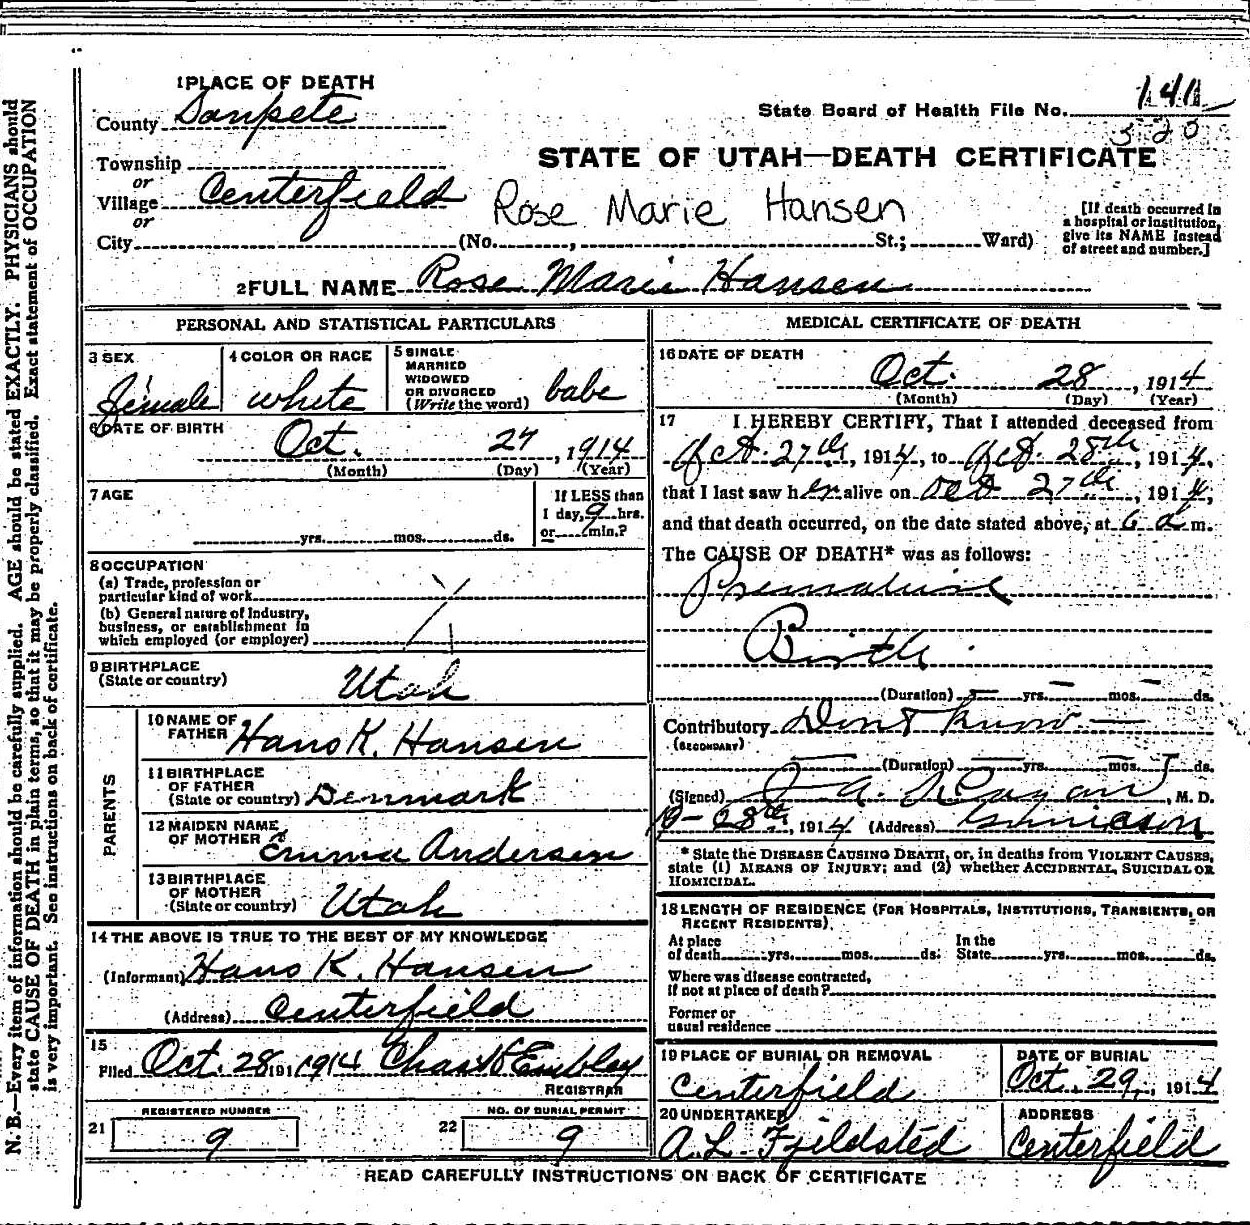 1 PLACE OF DEATH
County Sanpete
State Board of Health File No. 141
320
Township
STATE OF UTAH—DEATH CERTIFICATE
or
Village Centerfield
Rose Marie Hansen
or
City (No. , St.; Ward)
[If death occurred in
a hospital or institution,
give its NAME instead
of street and number.]
2 FULL NAME Rose Marie Hansen
PERSONAL AND STATISTICAL PARTICULARS
3 SEX
female
4 COLOR OR RACE
white
5 SINGLE
MARRIED
WIDOWED
OR DIVORCED
(Write the word) babe
6 DATE OF BIRTH
Oct. 27, 1914
(Month) (Day) (Year)
7 AGE
yrs. mos. ds.
If LESS than
1 day, 9 hrs.
or min.?
8 OCCUPATION
(a) Trade, profession or
particular kind of work
(b) General nature of Industry,
business, or establishment in
which employed (or employer)
9 BIRTHPLACE
(State or country) Utah
PARENTS
10 NAME OF
FATHER Hans K. Hansen
11 BIRTHPLACE
OF FATHER
(State or country) Denmark
12 MAIDEN NAME
OF MOTHER Emma Andersen
13 BIRTHPLACE
OF MOTHER
(State or country) Utah
14 THE ABOVE IS TRUE TO THE BEST OF MY KNOWLEDGE
(Informant) Hans K. Hansen
(Address) Centerfield
15
Filed Oct. 28 191 1914 Chas Embley
REGISTRAR
REGISTERED NUMBER
21 9
NO. OF BURIAL PERMIT
22 9
MEDICAL CERTIFICATE OF DEATH
16 DATE OF DEATH
Oct. 28, 1914
(Month) (Day) (Year)
17 I HEREBY CERTIFY, That I attended deceased from
Oct. 27th, 1914, to Oct. 28th, 1914,
that I last saw her alive on Oct 27th, 1914,
and that death occurred, on the date stated above, at 6 a m.
The CAUSE OF DEATH* was as follows:
Premature
Birth.
(Duration) — yrs. — mos. — ds.
Contributory Dont know —
(SECONDARY)
(Duration) yrs. mos. ds.
(Signed) , M. D.
10-28th, 1914 (Address) Gunnison
* State the DISEASE CAUSING DEATH, or, in deaths from VIOLENT CAUSES,
state (1) MEANS OF INJURY; and (2) whether ACCIDENTAL, SUICIDAL OR
HOMICIDAL.
18 LENGTH OF RESIDENCE (FOR HOSPITALS, INSTITUTIONS, TRANSIENTS, OR
RECENT RESIDENTS).
At place In the
of death yrs. mos. ds. State yrs. mos. ds.
Where was disease contracted,
if not at place of death?
Former or
usual residence
19 PLACE OF BURIAL OR REMOVAL
Centerfield
DATE OF BURIAL
Oct. 29, 1914
20 UNDERTAKER
A. L. Fjeldsted
ADDRESS
Centerfield
READ CAREFULLY INSTRUCTIONS ON BACK OF CERTIFICATE
N. B.—Every item of information should be carefully supplied. AGE should be stated EXACTLY. PHYSICIANS should
state CAUSE OF DEATH in plain terms, so that it may be properly classified. Exact statement of OCCUPATION
is very important. See instructions on back of certificate.